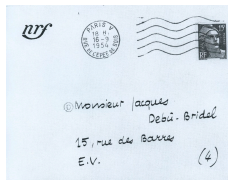 nrf
PARIS V
18 H.
16-9
1954
R. DE L'EPEE DE BOIS
15F
RF
©Monsieur Jacques
Debû-Bridel
15, rue des Barres
E.V. (4)